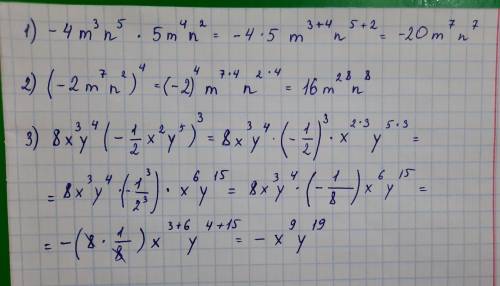 1) -4m³n⁵ · 5m⁴n² = -4·5 m³⁺⁴n⁵⁺² = -20m⁷n⁷
2) (-2m⁷n²)⁴ = (-2)⁴ m⁷·⁴ n²·⁴ = 16m²⁸n⁸
3) 8x³y⁴(-1/2 x²y⁵)³ = 8x³y⁴ · (-1/2)³ · x²·³ y⁵·³ =
= 8x³y⁴ · (-1³/2³) · x⁶y¹⁵ = 8x³y⁴ · (-1/8) x⁶y¹⁵ =
= -(8 · 1/8) x³⁺⁶ y⁴⁺¹⁵ = -x⁹y¹⁹